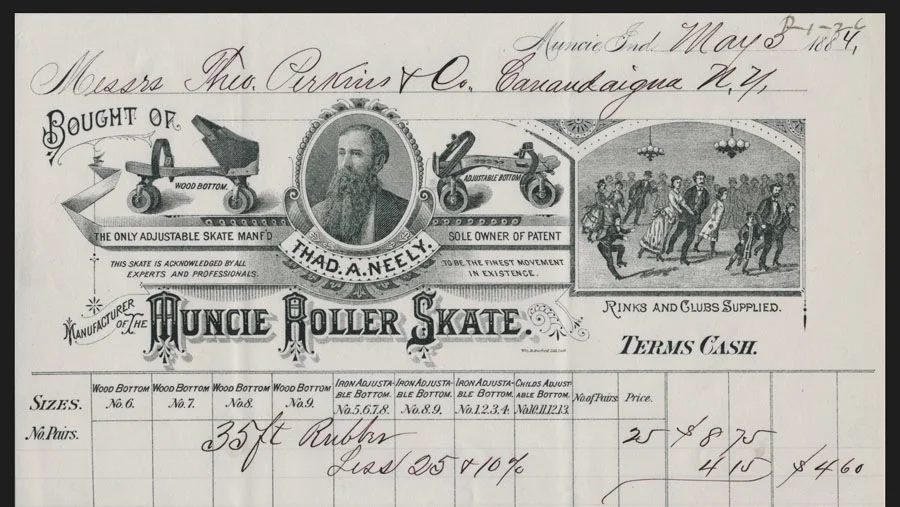 Muncie, Ind. May 3 1884,
Messrs Theo. Perkins & Co. Canandaigua N.Y,
BOUGHT OF
WOOD BOTTOM.
ADJUSTABLE BOTTOM
THE ONLY ADJUSTABLE SKATE MANF'D
SOLE OWNER OF PATENT
THAD. A. NEELY.
THIS SKATE IS ACKNOWLEDGED BY ALL
EXPERTS AND PROFESSIONALS.
TO BE THE FINEST MOVEMENT
IN EXISTENCE.
MANUFACTURER
OF THE MUNCIE ROLLER SKATE.
RINKS AND CLUBS SUPPLIED.
TERMS CASH.
SIZES. WOOD BOTTOM No. 6. WOOD BOTTOM No. 7. WOOD BOTTOM No. 8. WOOD BOTTOM No. 9. IRON ADJUSTA-BLE BOTTOM. No. 5.6.7.8. IRON ADJUSTA-BLE BOTTOM. No. 8.9. IRON ADJUSTA-BLE BOTTOM. No. 1.2.3.4. CHILDS ADJUST ABLE BOTTOM. No. 10.11.12.13. No. of Pairs. Price.
No. Pairs. 35 ft Rubber 25 $8 75
Less 25 & 10% 4 15 $4 60